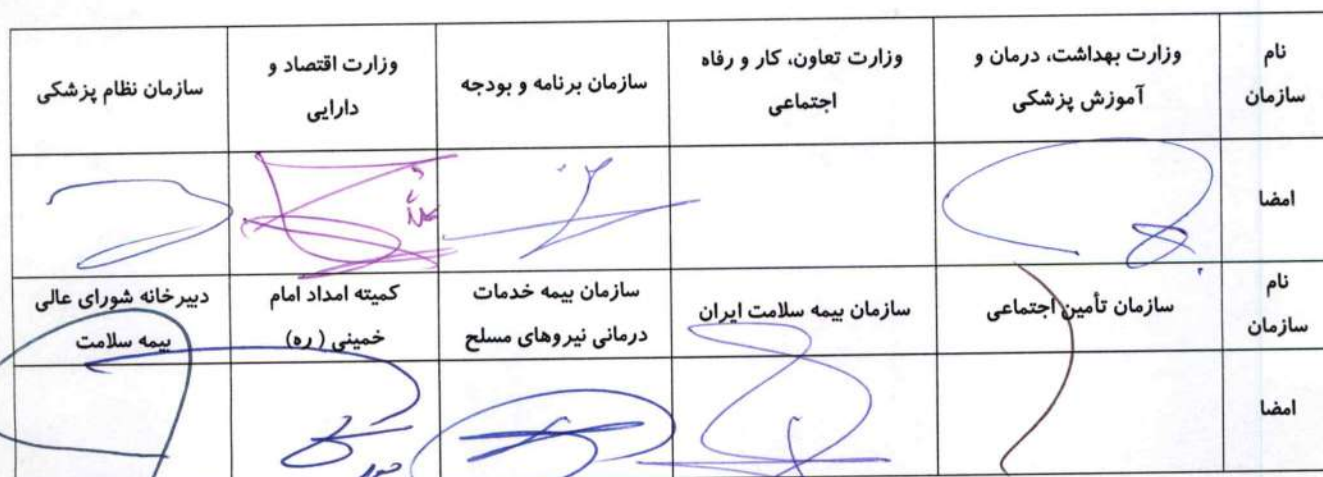 نام
سازمان
وزارت بهداشت، درمان و
آموزش پزشکی
وزارت تعاون، کار و رفاه
اجتماعی
سازمان برنامه و بودجه
وزارت اقتصاد و
دارایی
سازمان نظام پزشکی
امضا
نام
سازمان
سازمان تأمین اجتماعی
سازمان بیمه سلامت ایران
سازمان بیمه خدمات
درمانی نیروهای مسلح
کمیته امداد امام
خمینی (ره)
دبیرخانه شورای عالی
بیمه سلامت
امضا